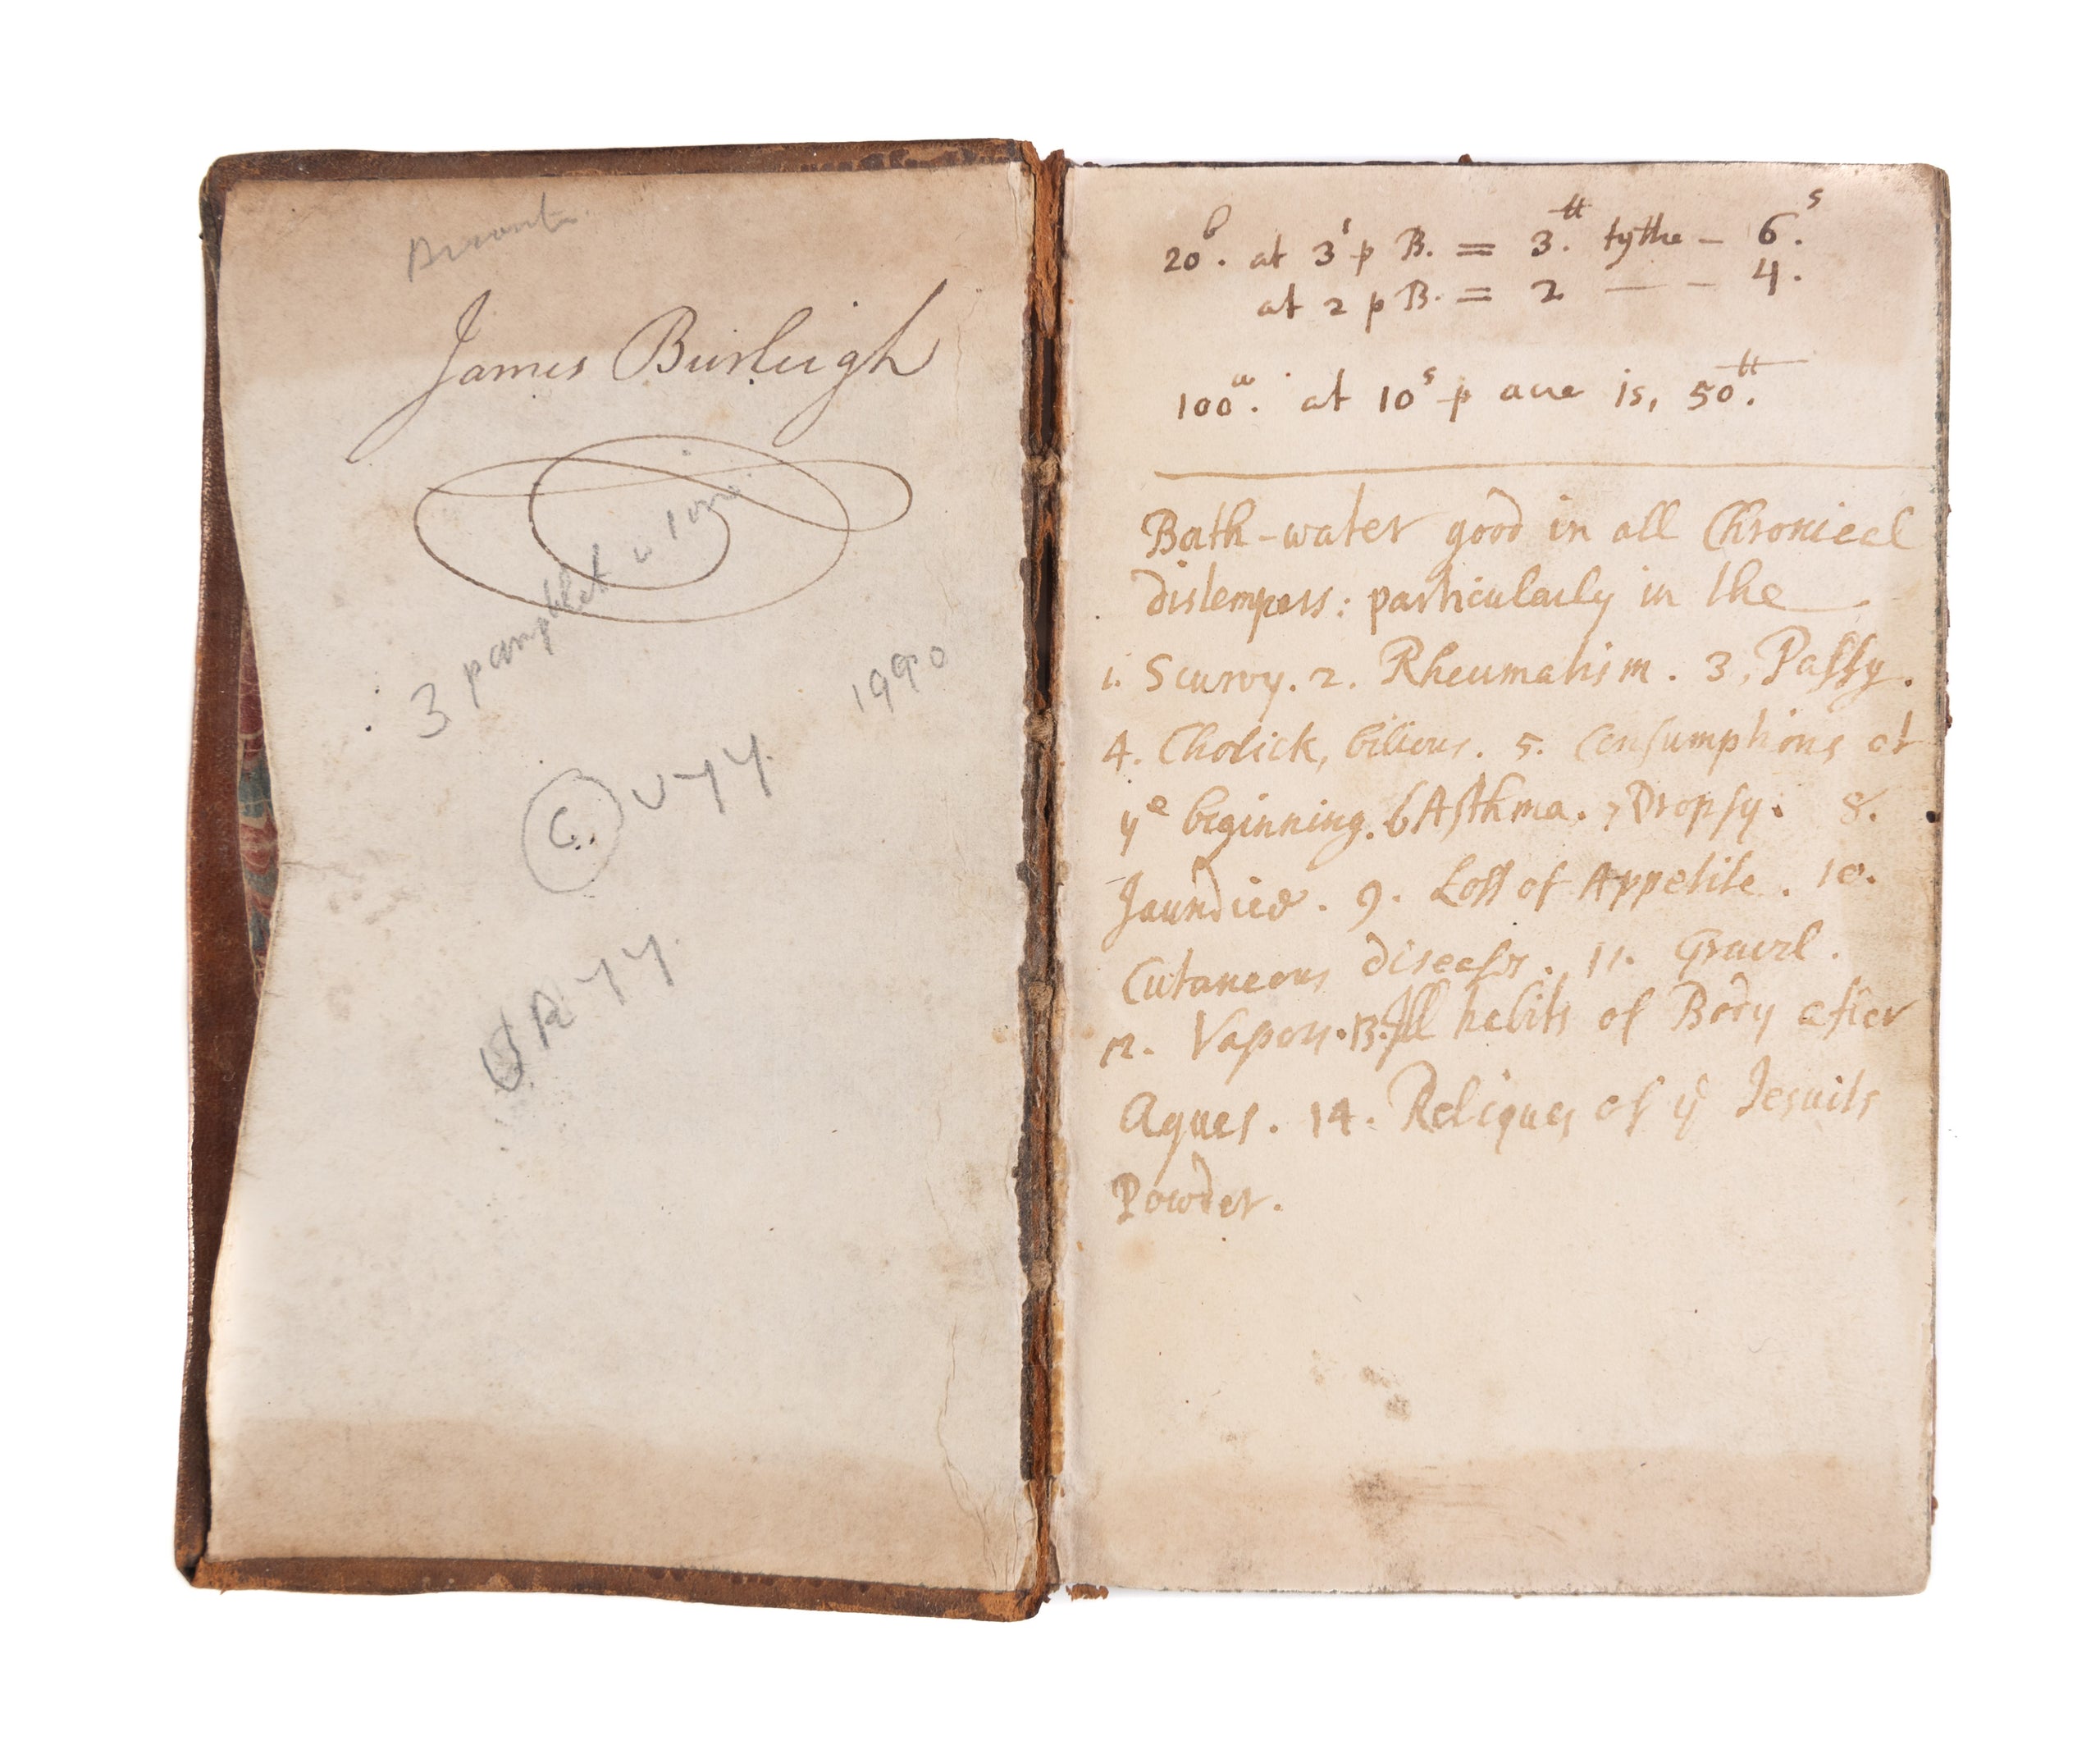 James Burleigh
3 pamphlet
1990
C. U Y Y
U R Y Y
20b. at 3s p B. = 3.tt tythe – 6.s
at 2 p B. = 2 — – 4.
100a. at 10s p acre is, 50tt.
Bath-water good in all Chronicel
distempers: particularly in the
1. Scurvy. 2. Rheumatism. 3. Palsy.
4. Cholick, bilious. 5. Consumptions at
ye beginning. 6 Asthma. 7 Dropsy. 8.
Jaundice. 9. Loss of Appetite. 10.
Cutaneous diseases. 11. Gravel.
12. Vapors. 13. Ill habits of Body after
Agues. 14. Reliques of ye Jesuits
Powder.